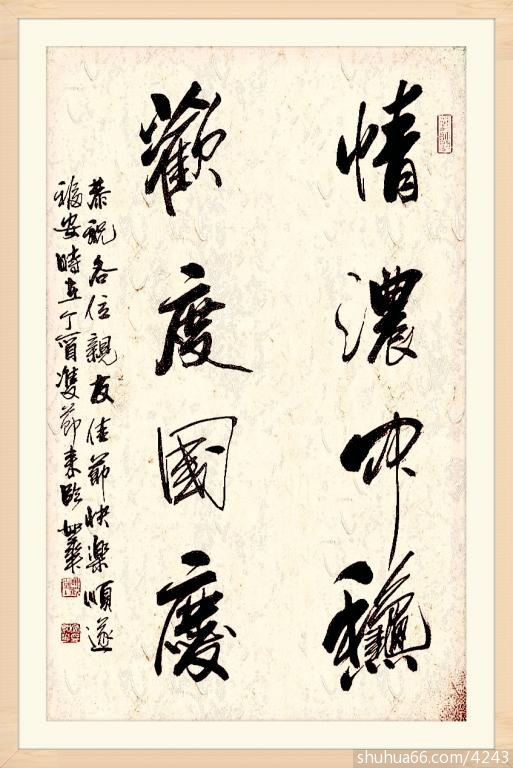 情濃中龝
歡度國慶
恭祝各位親友佳節快樂順遂
福安時在丁酉雙節来臨
shuhua66.com/4243